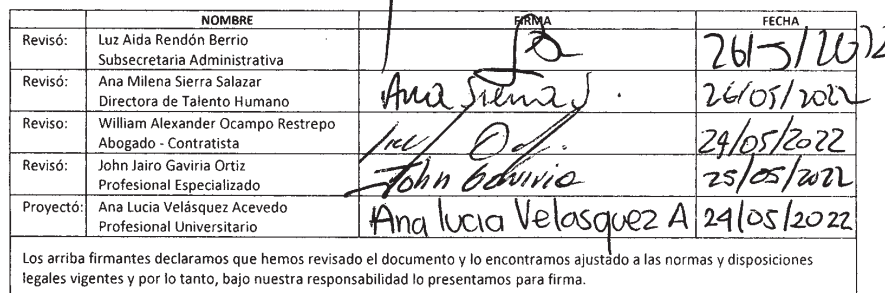 NOMBRE FIRMA FECHA
Revisó: Luz Aida Rendón Berrio
Subsecretaria Administrativa 26/5/2022
Revisó: Ana Milena Sierra Salazar
Directora de Talento Humano Ana Sierra S. 26/05/2022
Reviso: William Alexander Ocampo Restrepo
Abogado - Contratista 24/05/2022
Revisó: John Jairo Gaviria Ortiz
Profesional Especializado John Gaviria 25/05/2022
Proyectó: Ana Lucia Velásquez Acevedo
Profesional Universitario Ana lucia Velasquez A 24/05/2022
Los arriba firmantes declaramos que hemos revisado el documento y lo encontramos ajustado a las normas y disposiciones
legales vigentes y por lo tanto, bajo nuestra responsabilidad lo presentamos para firma.